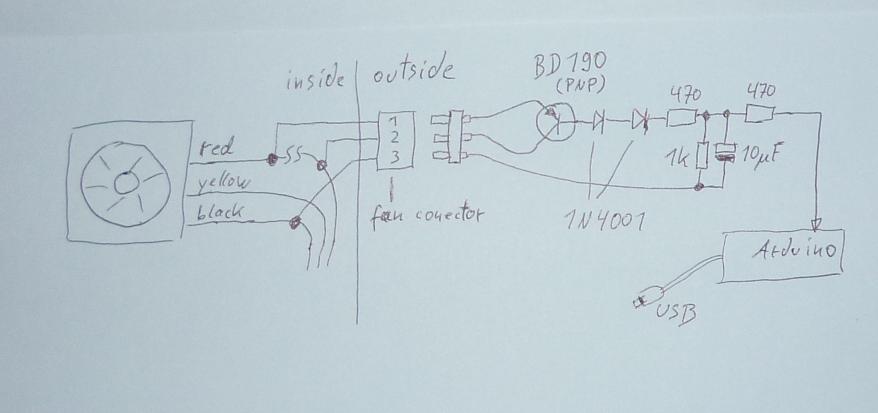 inside
outside
BD190
(PNP)
470
470
red
yellow
black
1
2
3
1k
10µF
fan conector
1N4001
Arduino
USB